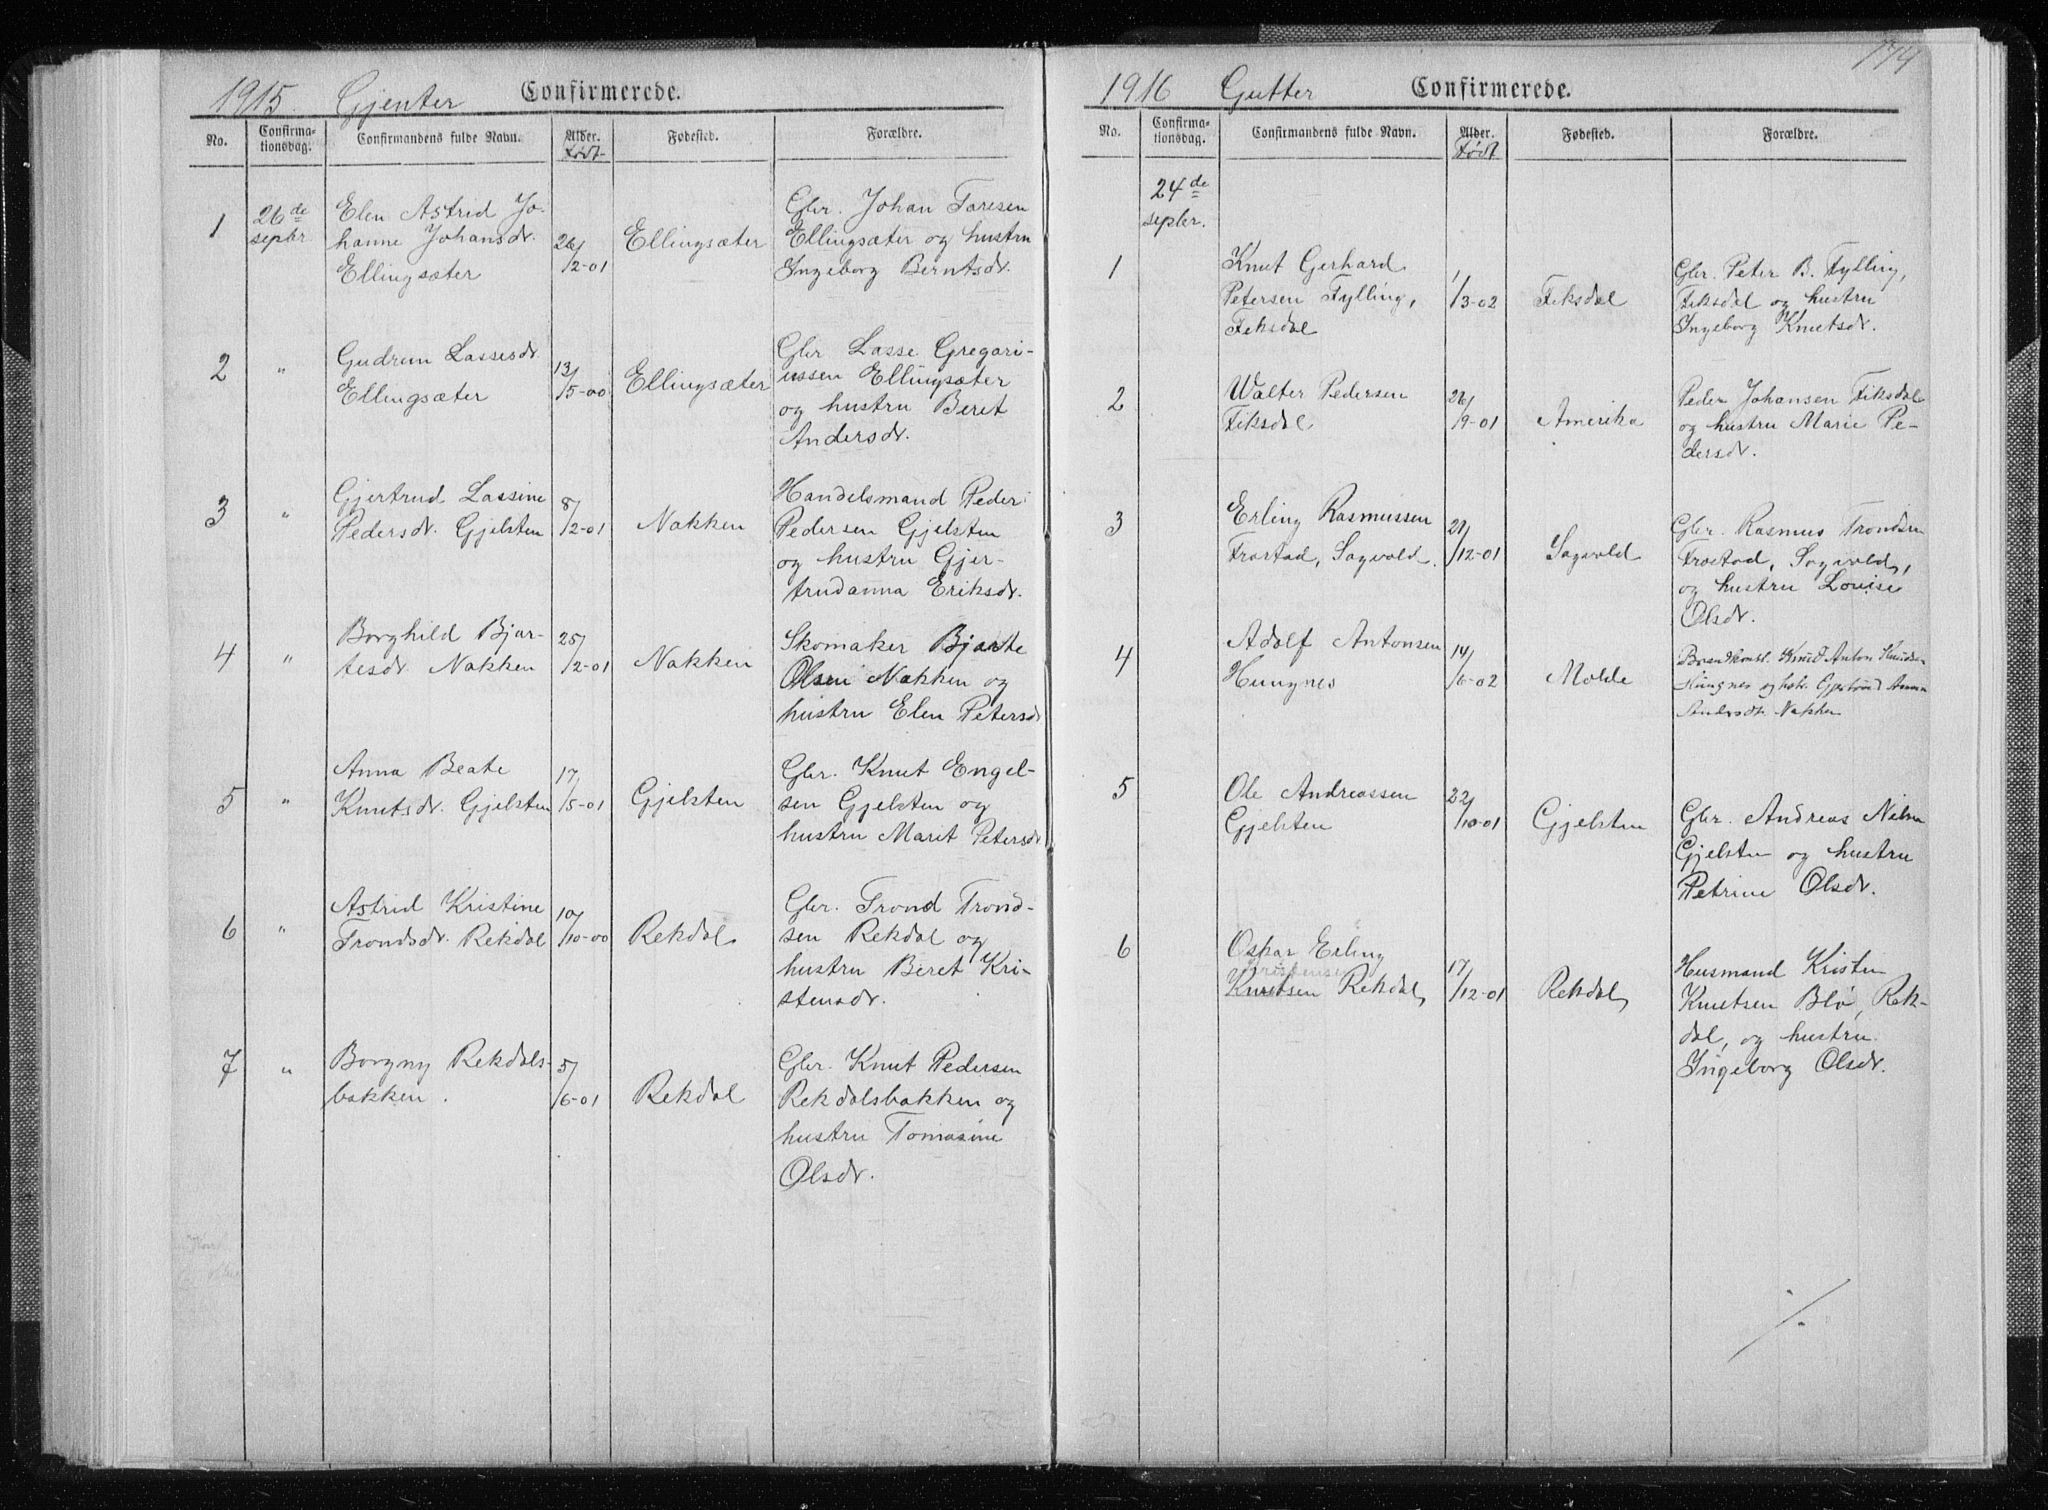 1915. Gjenter Confirmerede.
No. Confirma-tionsdag. Confirmandens fulde Navn. Alder. Født Fødested. Forældre.
1 26de septbr Elen Astrid Jo- Gbr. Johan Taresen
hanne Johansdr. 26/2-01 Ellingsæter Ellingsæter og hustru
Ellingsæter Ingeborg Berntsdr.
2 " Gudrun Lassesdr. 13/5-00 Ellingsæter Gbr Lasse Gregori-
Ellingsæter ussen Ellingsæter
og hustru Beret
Andersdr.
3 " Gjertrud Lassine 8/2-01 Nakken Handelsmand Peder
Pedersdr. Gjelsten Pedersen Gjelsten
og hustru Gjer-
trudanna Eriksdr.
4 " Borghild Bjar- 25/2-01 Nakken Skomaker Bjarte
tesdr. Nakken Olsen Nakken og
hustru Elen Petersdr
5 " Anna Beate 17/5-01 Gjelsten Gbr. Knut Engel-
Knutsdr. Gjelsten sen Gjelsten og
hustru Marit Petersdr
6 " Astrid Kristine 10/10-00 Rekdal Gbr. Trond Trond-
Trondsdr. Rekdal sen Rekdal og
hustru Beret Kri-
stensdr.
7 " Borgny Rekdals- 5/6-01 Rekdal Gbr. Knut Pedersen
bakken. Rekdalsbakken og
hustru Tomasine
Olsdr.
174
1916 Gutter Confirmerede.
No. Confirma-tionsdag. Confirmandens fulde Navn. Alder. Født Fødested. Forældre.
24de
septbr.
1 Knut Gerhard 1/3-02 Fiksdal Gbr. Peter B. Fylling,
Petersen Fylling, Fiksdal og hustru
Fiksdal Ingeborg Knutsdr.
2 Walter Pedersen 26/9-01 Amerika Peder Johansen Fiksdal
Fiksdal og hustru Marie Pe-
dersdr.
3 Erling Rasmussen /12-01 Sagvold Gbr. Rasmus Trondsen
Frostad, Sagvold. Frostad, Sagvold,
og hustru Louise
Olsdr.
4 Adolf Antonsen 14/6-02 Molde Brandkonst. Knut Anton Knudsen
Hungnes Hungnes og hstr. Gjertrud Anna
Andersdtr. Nakken
5 Ole Andreassen 22/10-01 Gjelsten Gbr. Andreas Nilsen
Gjelsten Gjelsten og hustru
Petrine Olsdr.
6 Oskar Erling 17/12-01 Rekdal Husmand Kristen
Kristensen
Knutsen Rekdal Knutsen Blø, Rek-
dal, og hustru
Ingeborg Olsdr.